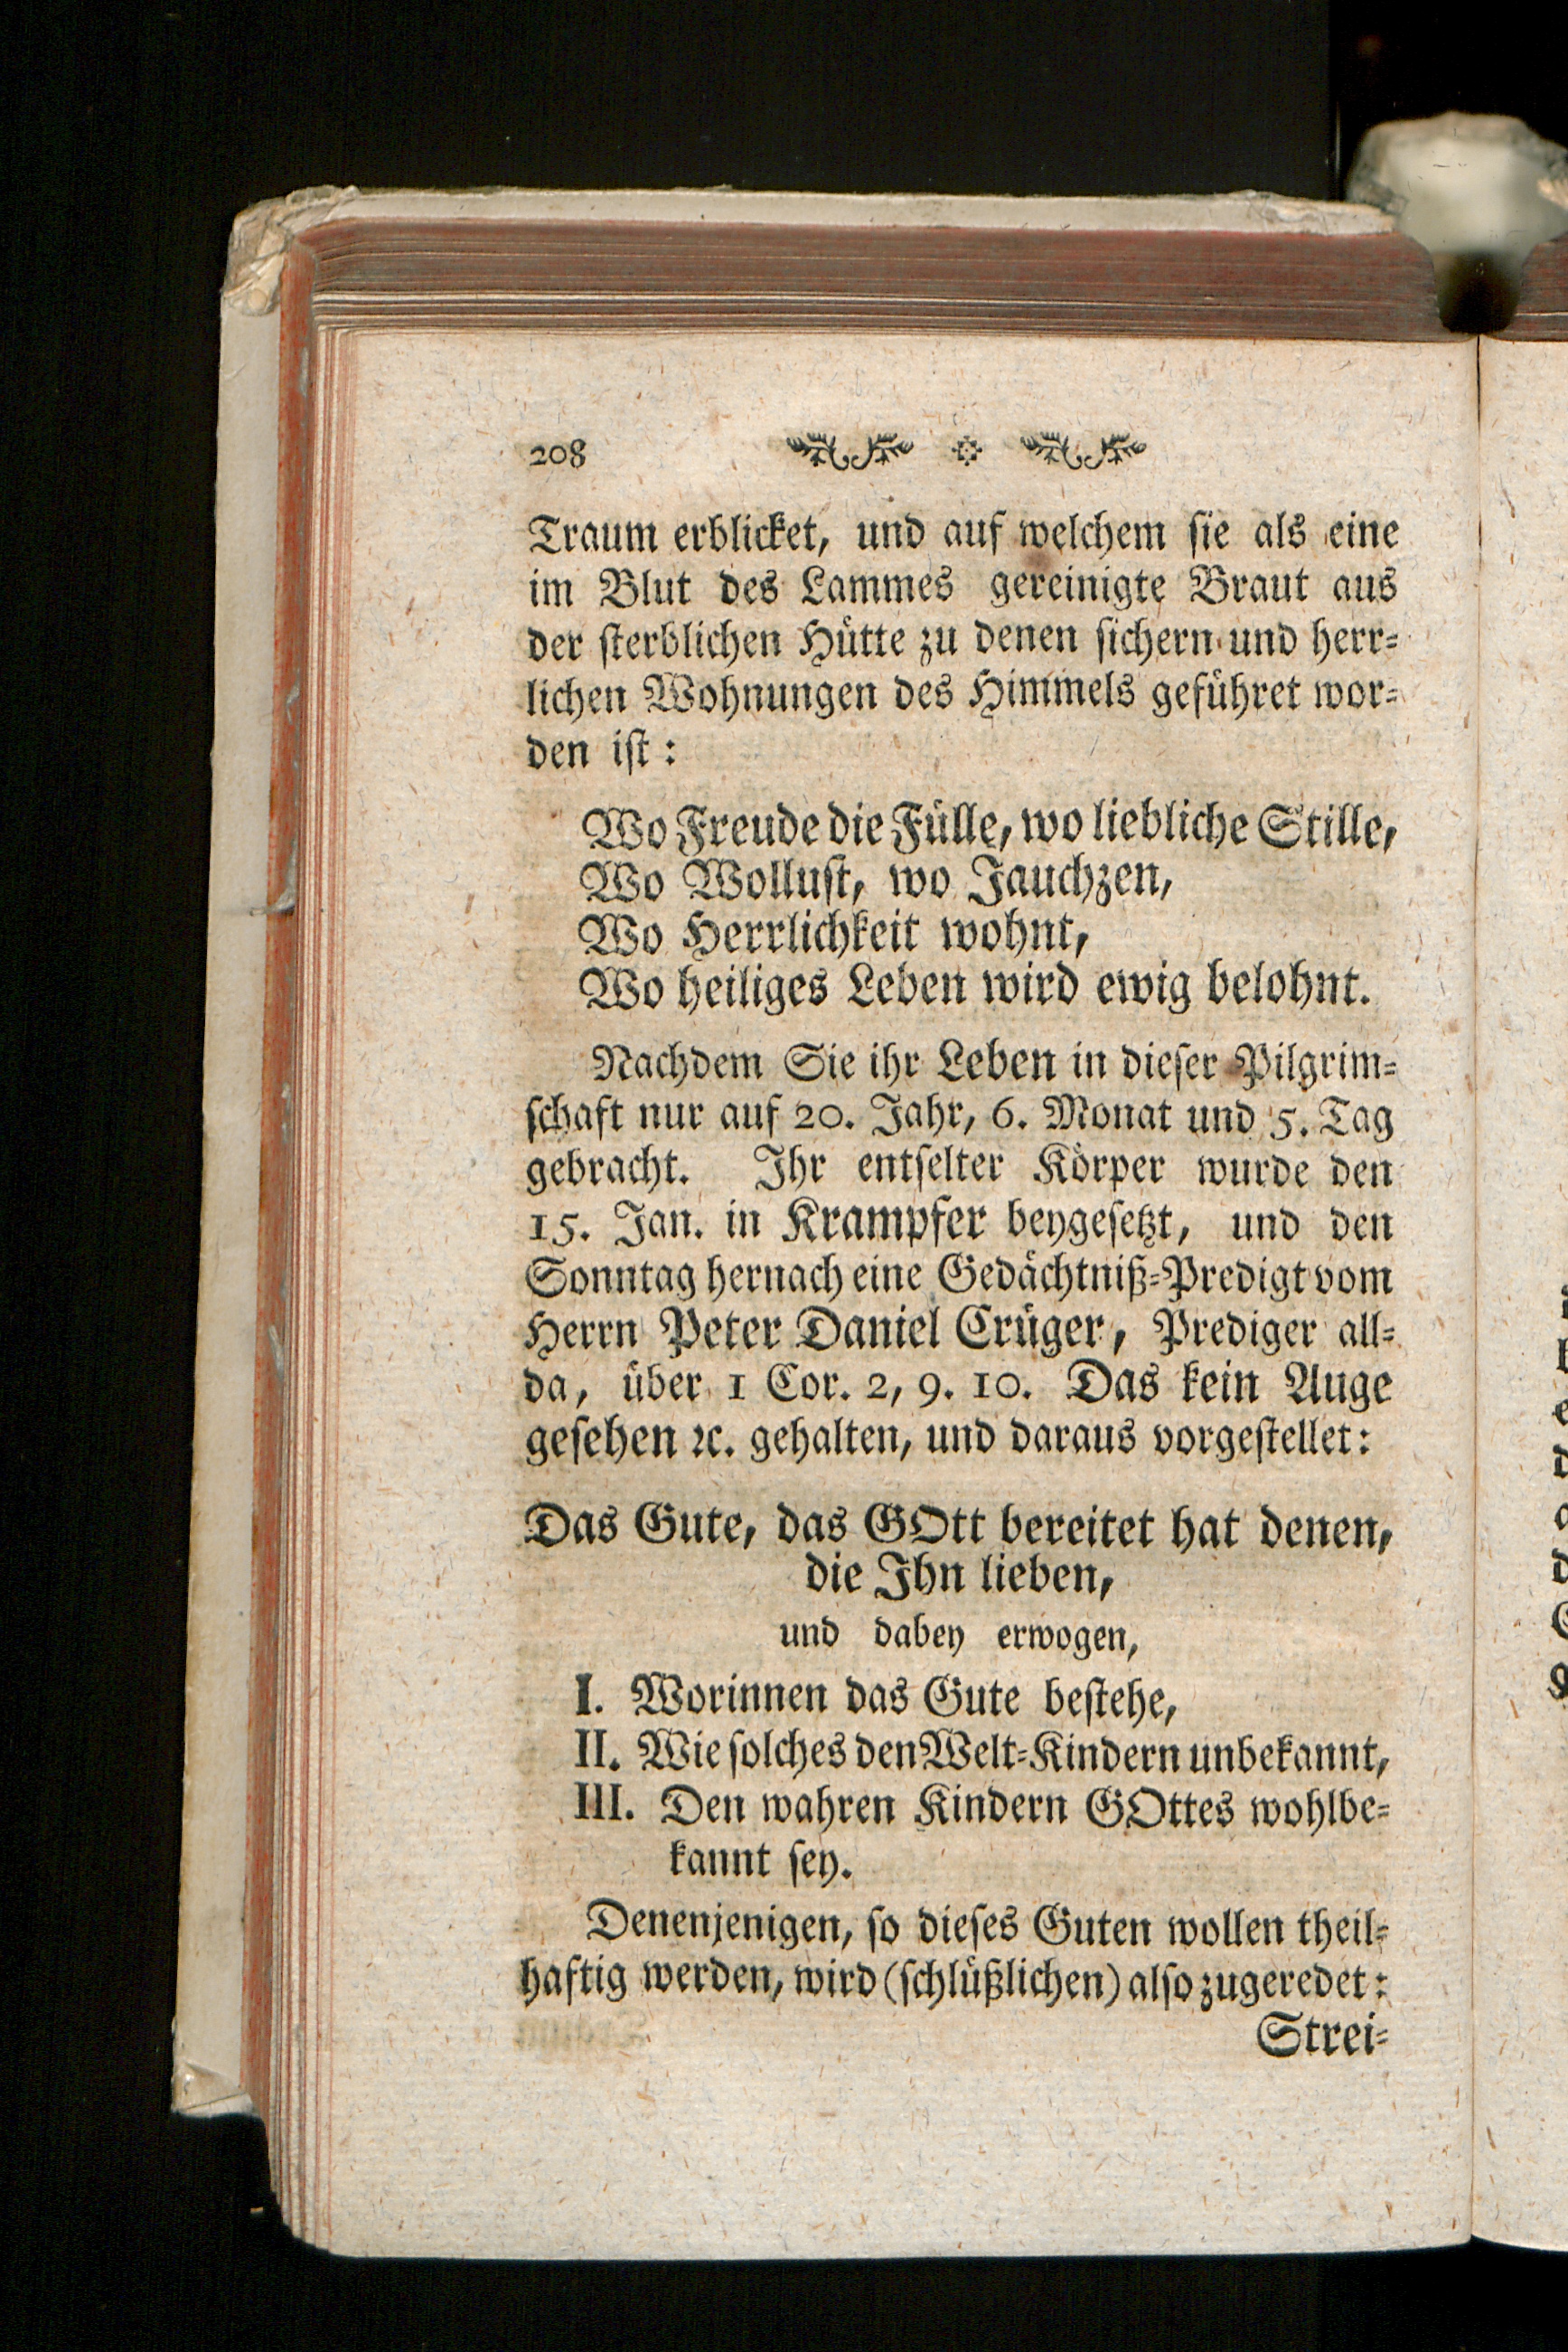 208
Traum erblicket, und auf welchem sie als eine
im Blut des Lammes gereinigte Braut aus
der sterblichen Hütte zu denen sichern und herr=
lichen Wohnungen des Himmels geführet wor=
den ist:
Wo Freude die Fülle, wo liebliche Stille,
Wo Wollust, wo Jauchzen,
Wo Herrlichkeit wohnt,
Wo heiliges Leben wird ewig belohnt.
Nachdem Sie ihr Leben in dieser Pilgrim=
schaft nur auf 20. Jahr, 6. Monat und 5. Tag
gebracht. Ihr entselter Körper wurde den
15. Jan. in Krampfer beygesetzt, und den
Sonntag hernach eine Gedächtniß=Predigt vom
Herrn Peter Daniel Crüger, Prediger all=
da, über 1 Cor. 2, 9. 10. Das kein Auge
gesehen ꝛc. gehalten, und daraus vorgestellet:
Das Gute, das GOtt bereitet hat denen,
die Ihn lieben,
und dabey erwogen,
I. Worinnen das Gute bestehe,
II. Wie solches den Welt=Kindern unbekannt,
III. Den wahren Kindern GOttes wohlbe=
kannt sey.
Denenjenigen, so dieses Guten wollen theil=
haftig werden, wird (schlüßlichen) also zugeredet:
Strei=